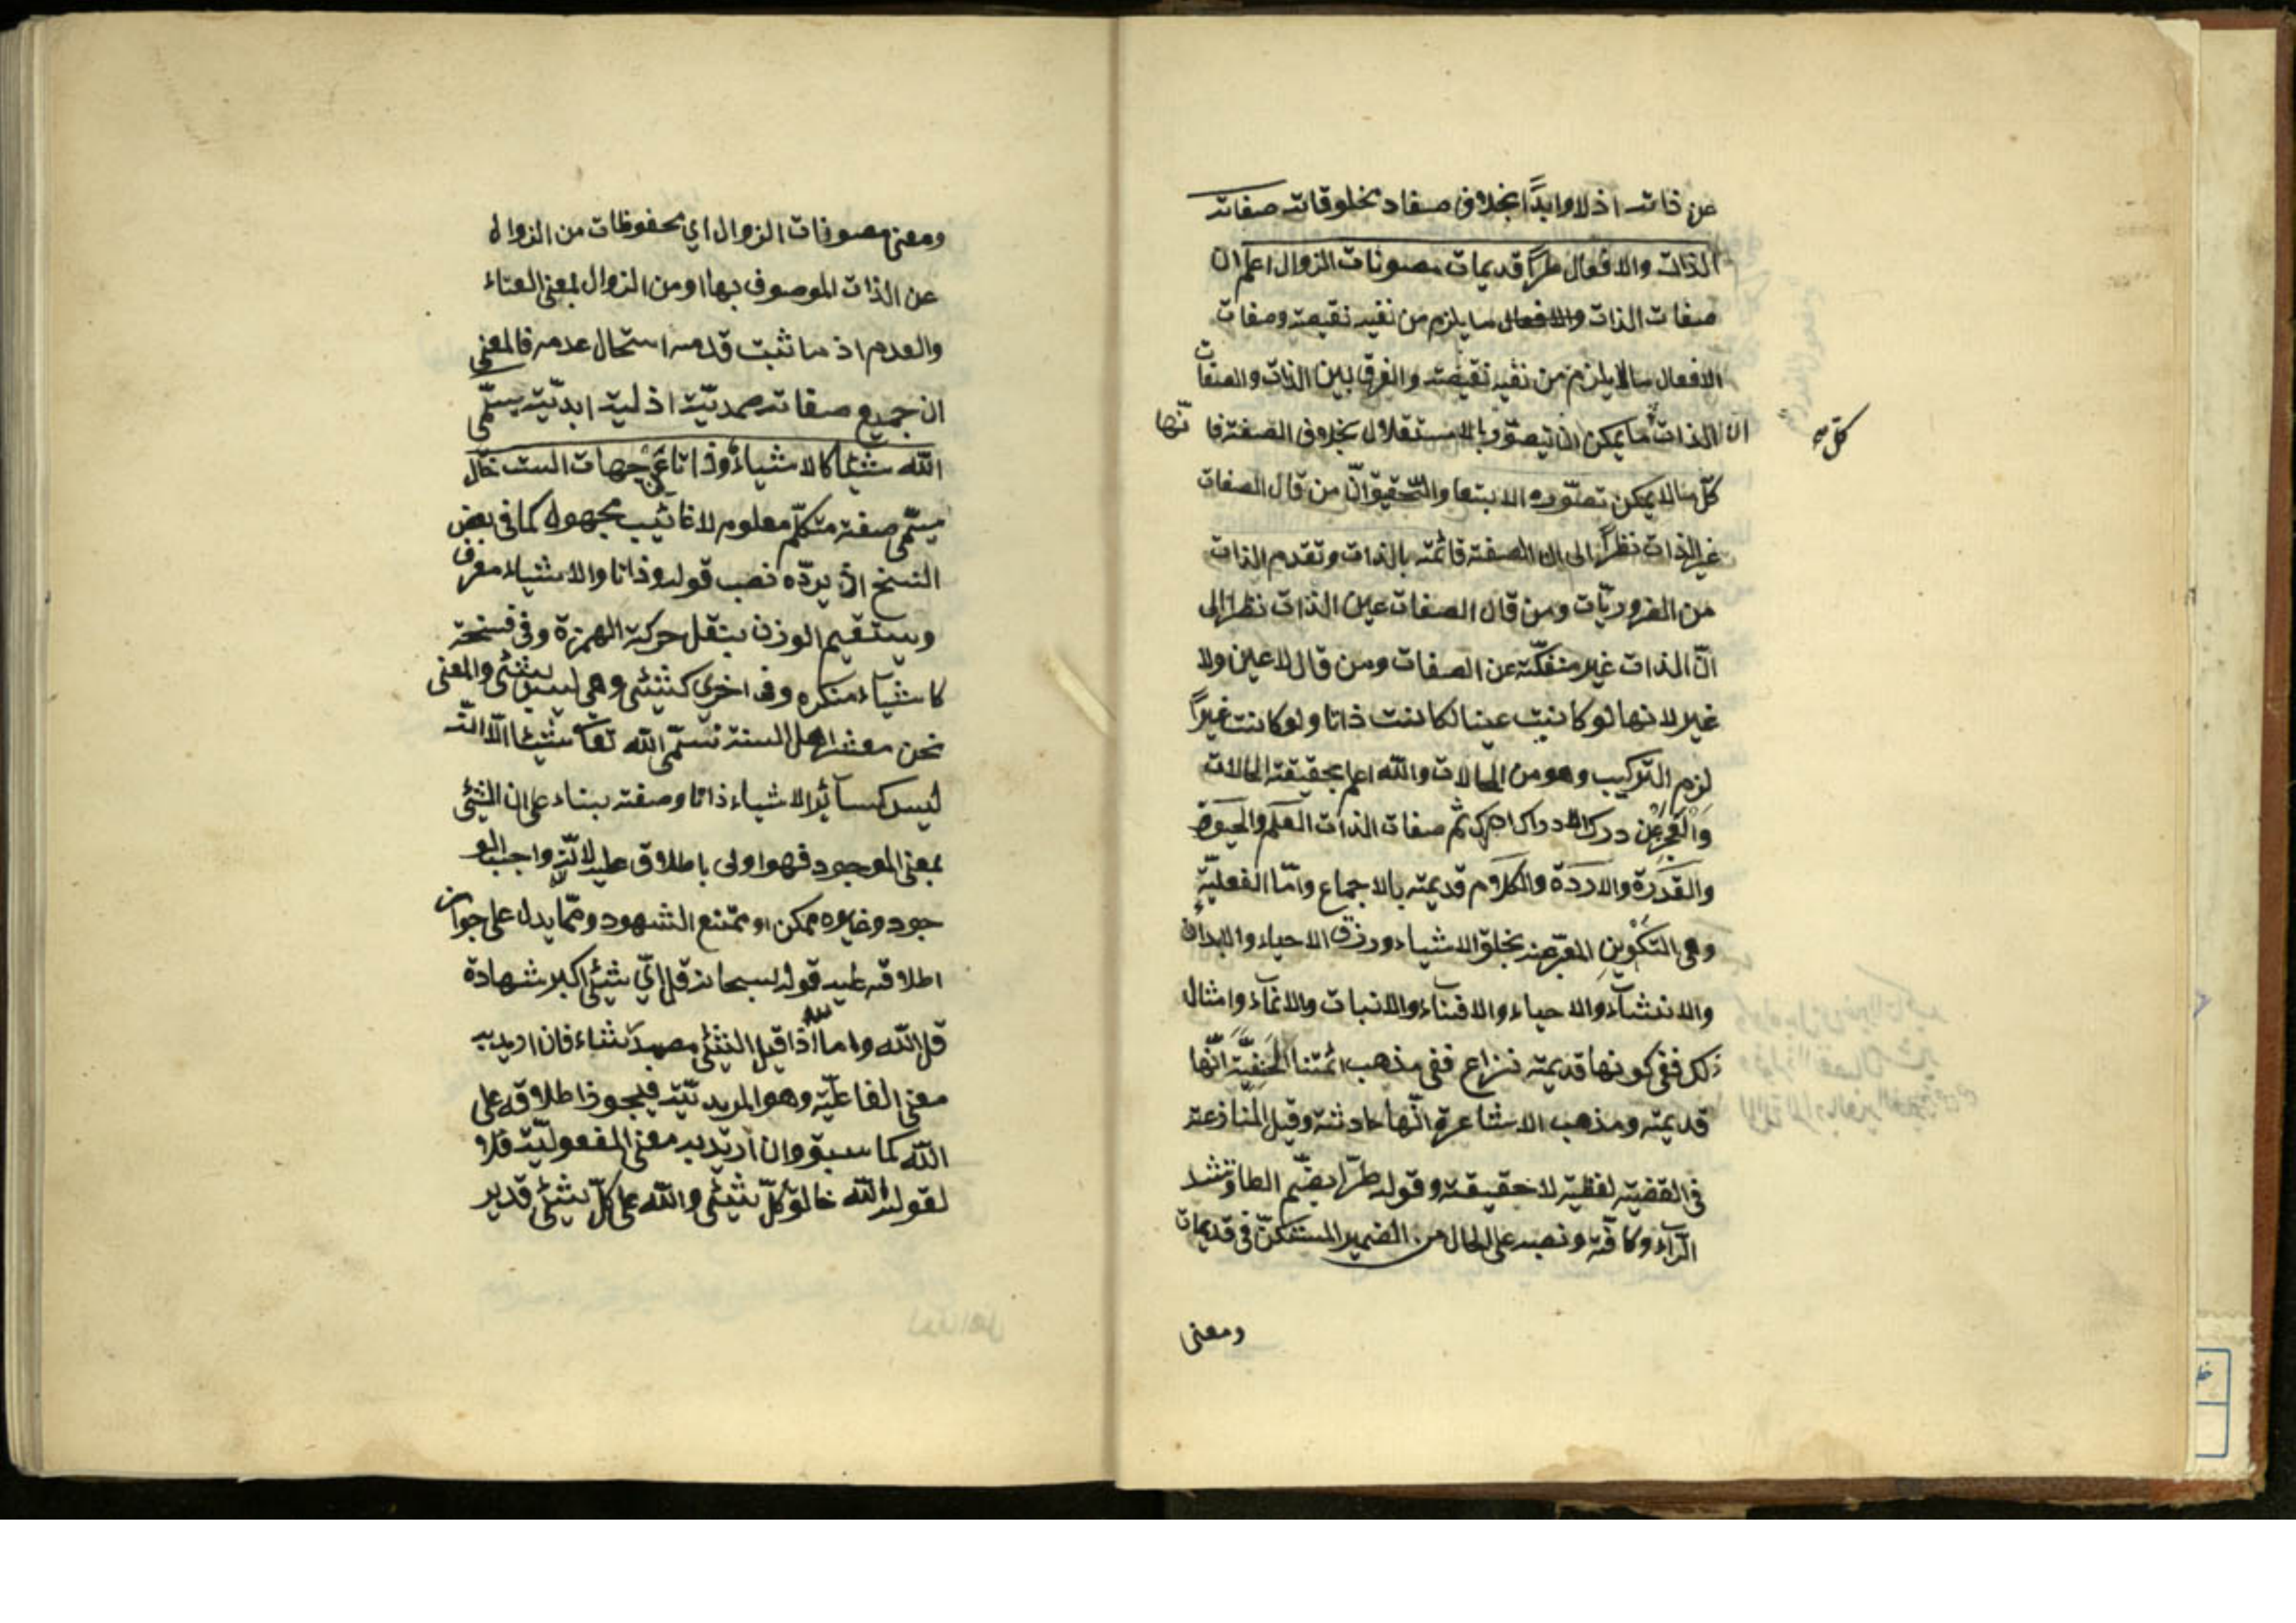 عن ذاته اذلا وابدًا بخلاف صفاد مخلوقاته صفات
الذات والافعال طرًّا قديمات مصونات الزوال اعلم ان
صفات الذات والافعال ما يلزم من نفيه نقيصة وصفات
الافعال ما لا يلزم من نفيه نقيصة والفرق بين الذات والصفات
ان الذات ما يمكن ان تيصوّر بالاستقلال بخلاف الصفة فا نّها
كل
كلّ ما لا يمكن تصوّره الا بتبعا والتحقيق انّ من قال الصفات
غير الذات نظرًا الى ان الصفة قائمة بالذات وتقدم الذات
من الضروريّات ومن قال الصفات عين الذات نظرا الى
انّ الذات غير منفكّة عن الصفات ومن قال لا عين ولا
غير لانها لو كانت عينا لكانت ذاتا ولو كانت غيرًا
لزم التركيب وهو من المحالات والله اعلم بحقيقة الحالات
والعجز عن درك الادراك ادراك ثم صفات الذات العلم والحيوة
والقدرة والاردة والكلام قديمة بالاجماع وامّا الفعليّة
وهي التكوين المعبّر عنه بخلق الاشياء ورزق الاحياء والابداع
والانشاء والاحياء والافناء والانبات والانماء وامثال
ذلك ففي كونها قديمة نزاع ففي مذهب ائمتنا الحنفيّة انّها
قديمة ومذهب الاشاعرة انّها حادثة وقيل المنازعة
في القضية لفظية لا حقيقة وقوله طرّا بضم الطا وتشد
الراء وكافّة ونصبه على الحال من الضمير المستكنّ في قديمات
ومعنى
ومعنى مصونات الزوال اي محفوظات من الزوال
عن الذات الموصوف بها او من الزوال بمعنى الفناء
والعدم اذ ما ثبت قدمه استحال عدمه فالمعنى
ان جميع صفاته صمديّة اذلية ابديّة يسمّى
الله شيئا كالاشياء وذاتا عن جهات الست خال
يسمّى صفة متكلّم معلوم لا غائب مجهول كما في بعض
النسخ اذ يردّه نصب قوله وذاتا والاشياء معرف
ويستقيم الوزن بنقل حركة الهمزة وفي نسخة
كاشياء منكره وفي اخرى كشئ وهي ليس بشئ والمعنى
نحن معشر اهل السنة نسمّى الله تعا شيئا الا انّه
ليس كسائر الاشياء ذاتا وصفة بناء على ان الشئ
بمعنى الموجود فهو اولى باطلاق عليه لانّه واجب الو
جود وغيره ممكن او ممتنع الشهود وممّا يدل على جواز
اطلاقه عليه قوله سبحانه قل ايّ شئ اكبر شهادة
قل الله واما اذا قيل الشئ مصدر شاء فان اريد به
معنى الفاعليّة وهو المريديّة فيجوز اطلاقه على
الله كما سبق وان اريد به معنى المفعوليّة فلا
لقوله الله خالق كلّ شئ والله على كلّ شئ قدير